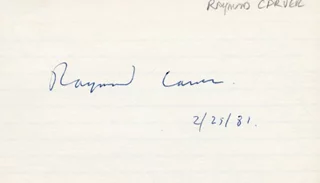 RAYMOND CARVER
Raymond Carver.
2/25/81.